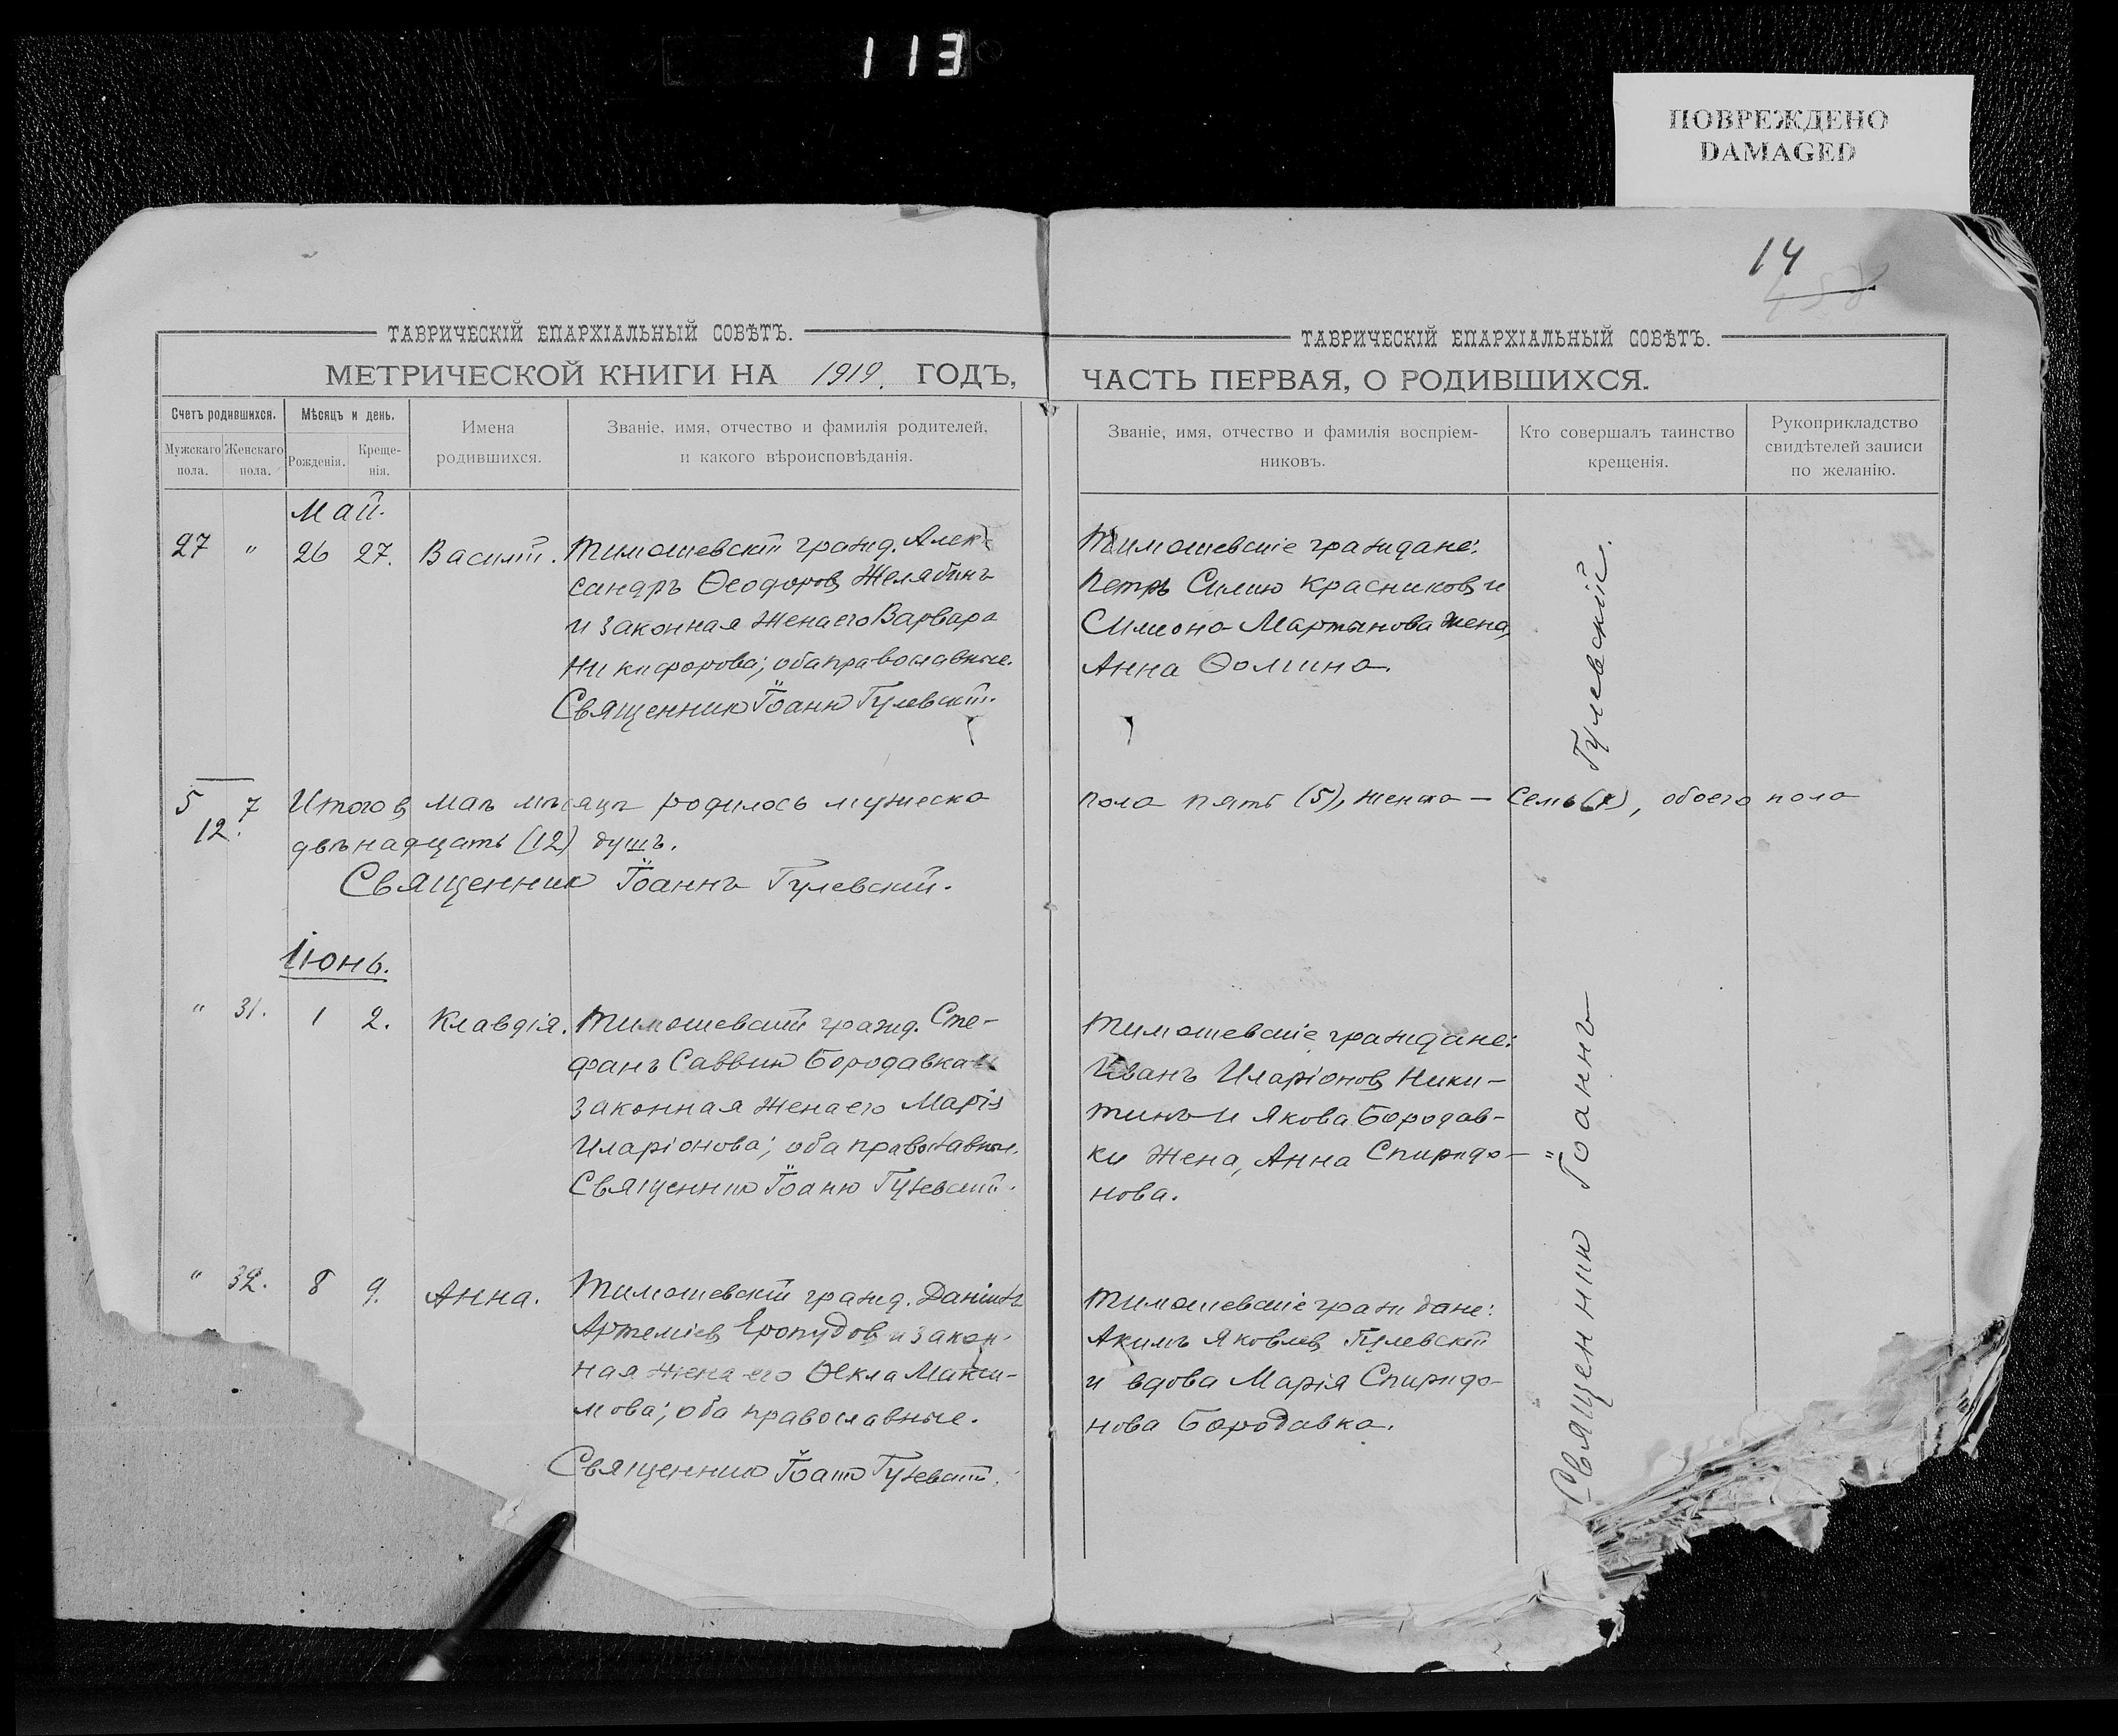 113
ПОВРЕЖДЕНО
DAMAGED
14
ТАВРИЧЕСКІЙ ЕПАРХІАЛЬНЫЙ СОВѢТЪ.
МЕТРИЧЕСКОЙ КНИГИ НА 1919. ГОДЪ,
Счетъ родившихся.
Мужскаго пола.
Женскаго пола.
Мѣсяцъ и день.
Рожденія.
Креще-
нія.
Имена
родившихся.
Званіе, имя, отчество и фамилія родителей,
и какого вѣроисповѣданія.
Май.
27 " 26 27. Василій. Тимошевскій гражд. Алек-
сандръ Ѳеодоровъ Желябинъ
и законная жена его Варвара
Никифорова; оба православные.
Священникъ Іоаннъ Гулевскій.
5 7 Итого въ маѣ мѣсяцѣ родилось мужеска
12. двѣнадцать (12) душъ.
Священникъ Іоаннъ Гулевскій.
Іюнь.
" 31. 1 2. Клавдія. Тимошевскій гражд. Сте-
фанъ Саввинъ Бородавка и
законная жена его Марія
Иларіонова; оба православные.
Священникъ Іоаннъ Гулевскій.
" 32. 8 9. Анна. Тимошевскій гражд. Даніилъ
Артеміевъ и закон-
ная жена его Ѳекла Макси-
мова; оба православные.
Священникъ Іоаннъ Гулевскій.
ТАВРИЧЕСКІЙ ЕПАРХІАЛЬНЫЙ СОВѢТЪ.
ЧАСТЬ ПЕРВАЯ, О РОДИВШИХСЯ.
Званіе, имя, отчество и фамилія воспріем-
никовъ.
Кто совершалъ таинство
крещенія.
Рукоприкладство
свидѣтелей записи
по желанію.
Тимошевскіе граждане:
Петръ Силинъ Красниковъ и
Симеона Мартынова жена,
Анна Ѳомина.
пола пять (5), женска — семь (7), обоего пола
Тимошевскіе граждане:
Иванъ Иларіоновъ Ники-
тинъ и Якова Бородав-
ки жена, Анна Спиридо-
нова.
Тимошевскіе граждане:
Акимъ Яковлевъ Гулевскій
и вдова Марія Спиридо-
нова Бородавка.
Священникъ Іоаннъ Гулевскій.